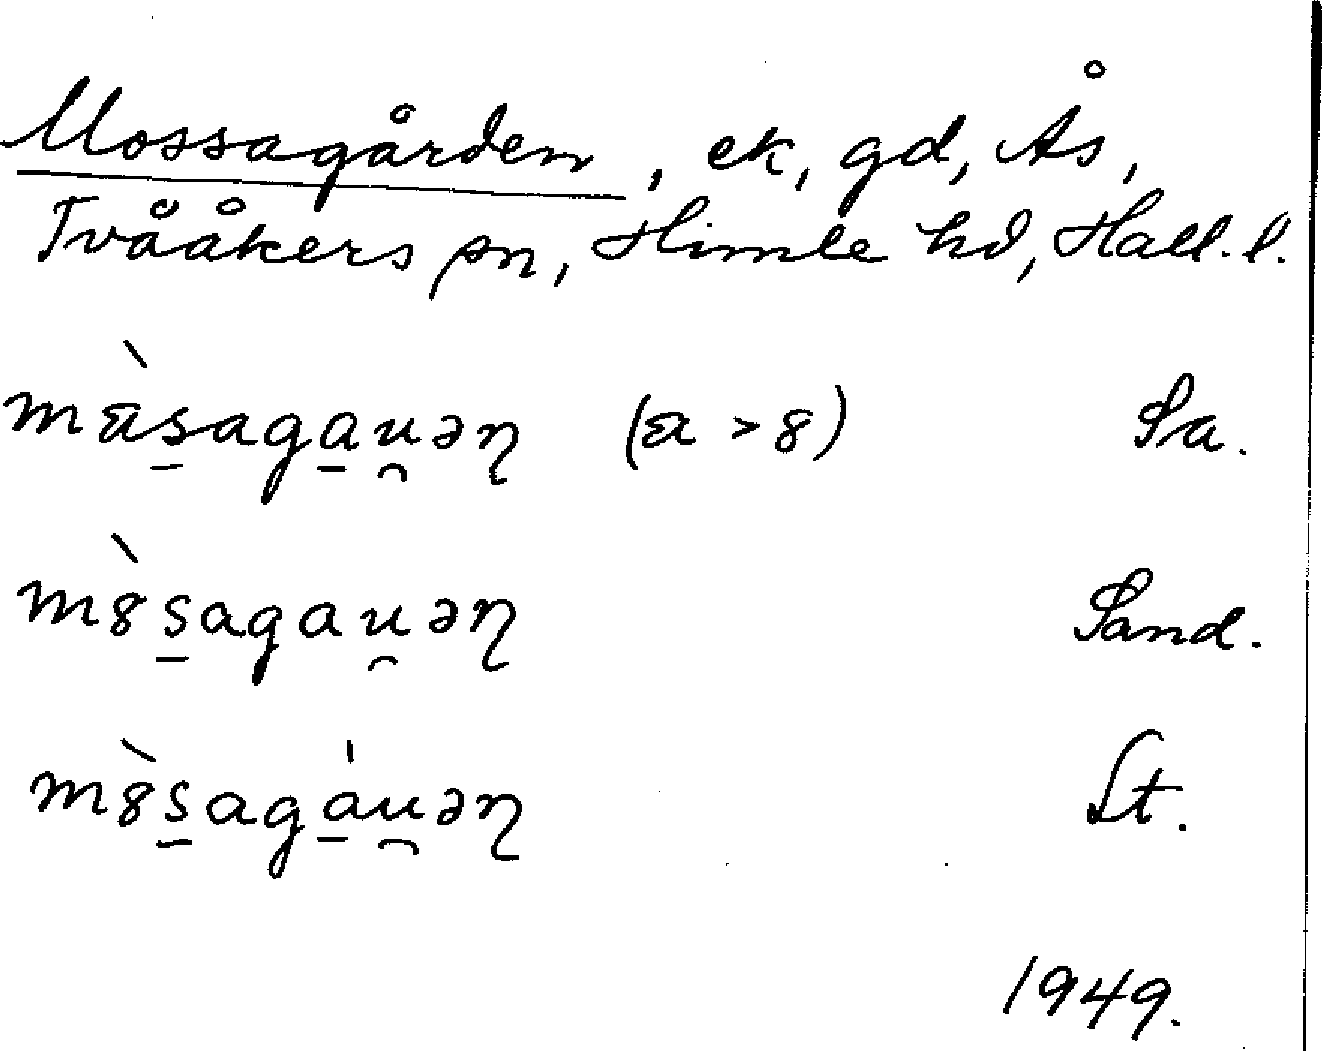 Mossagården, ek, gd, Ås,
Tvååkers sn, Himle hd, Hall. l.
màs̠aga̠u̯əɳ (a > 8) Sa.
m8̀s̠agau̯əɳ Sand.
m8̀s̠agá̠u̯əɳ St.
1949.